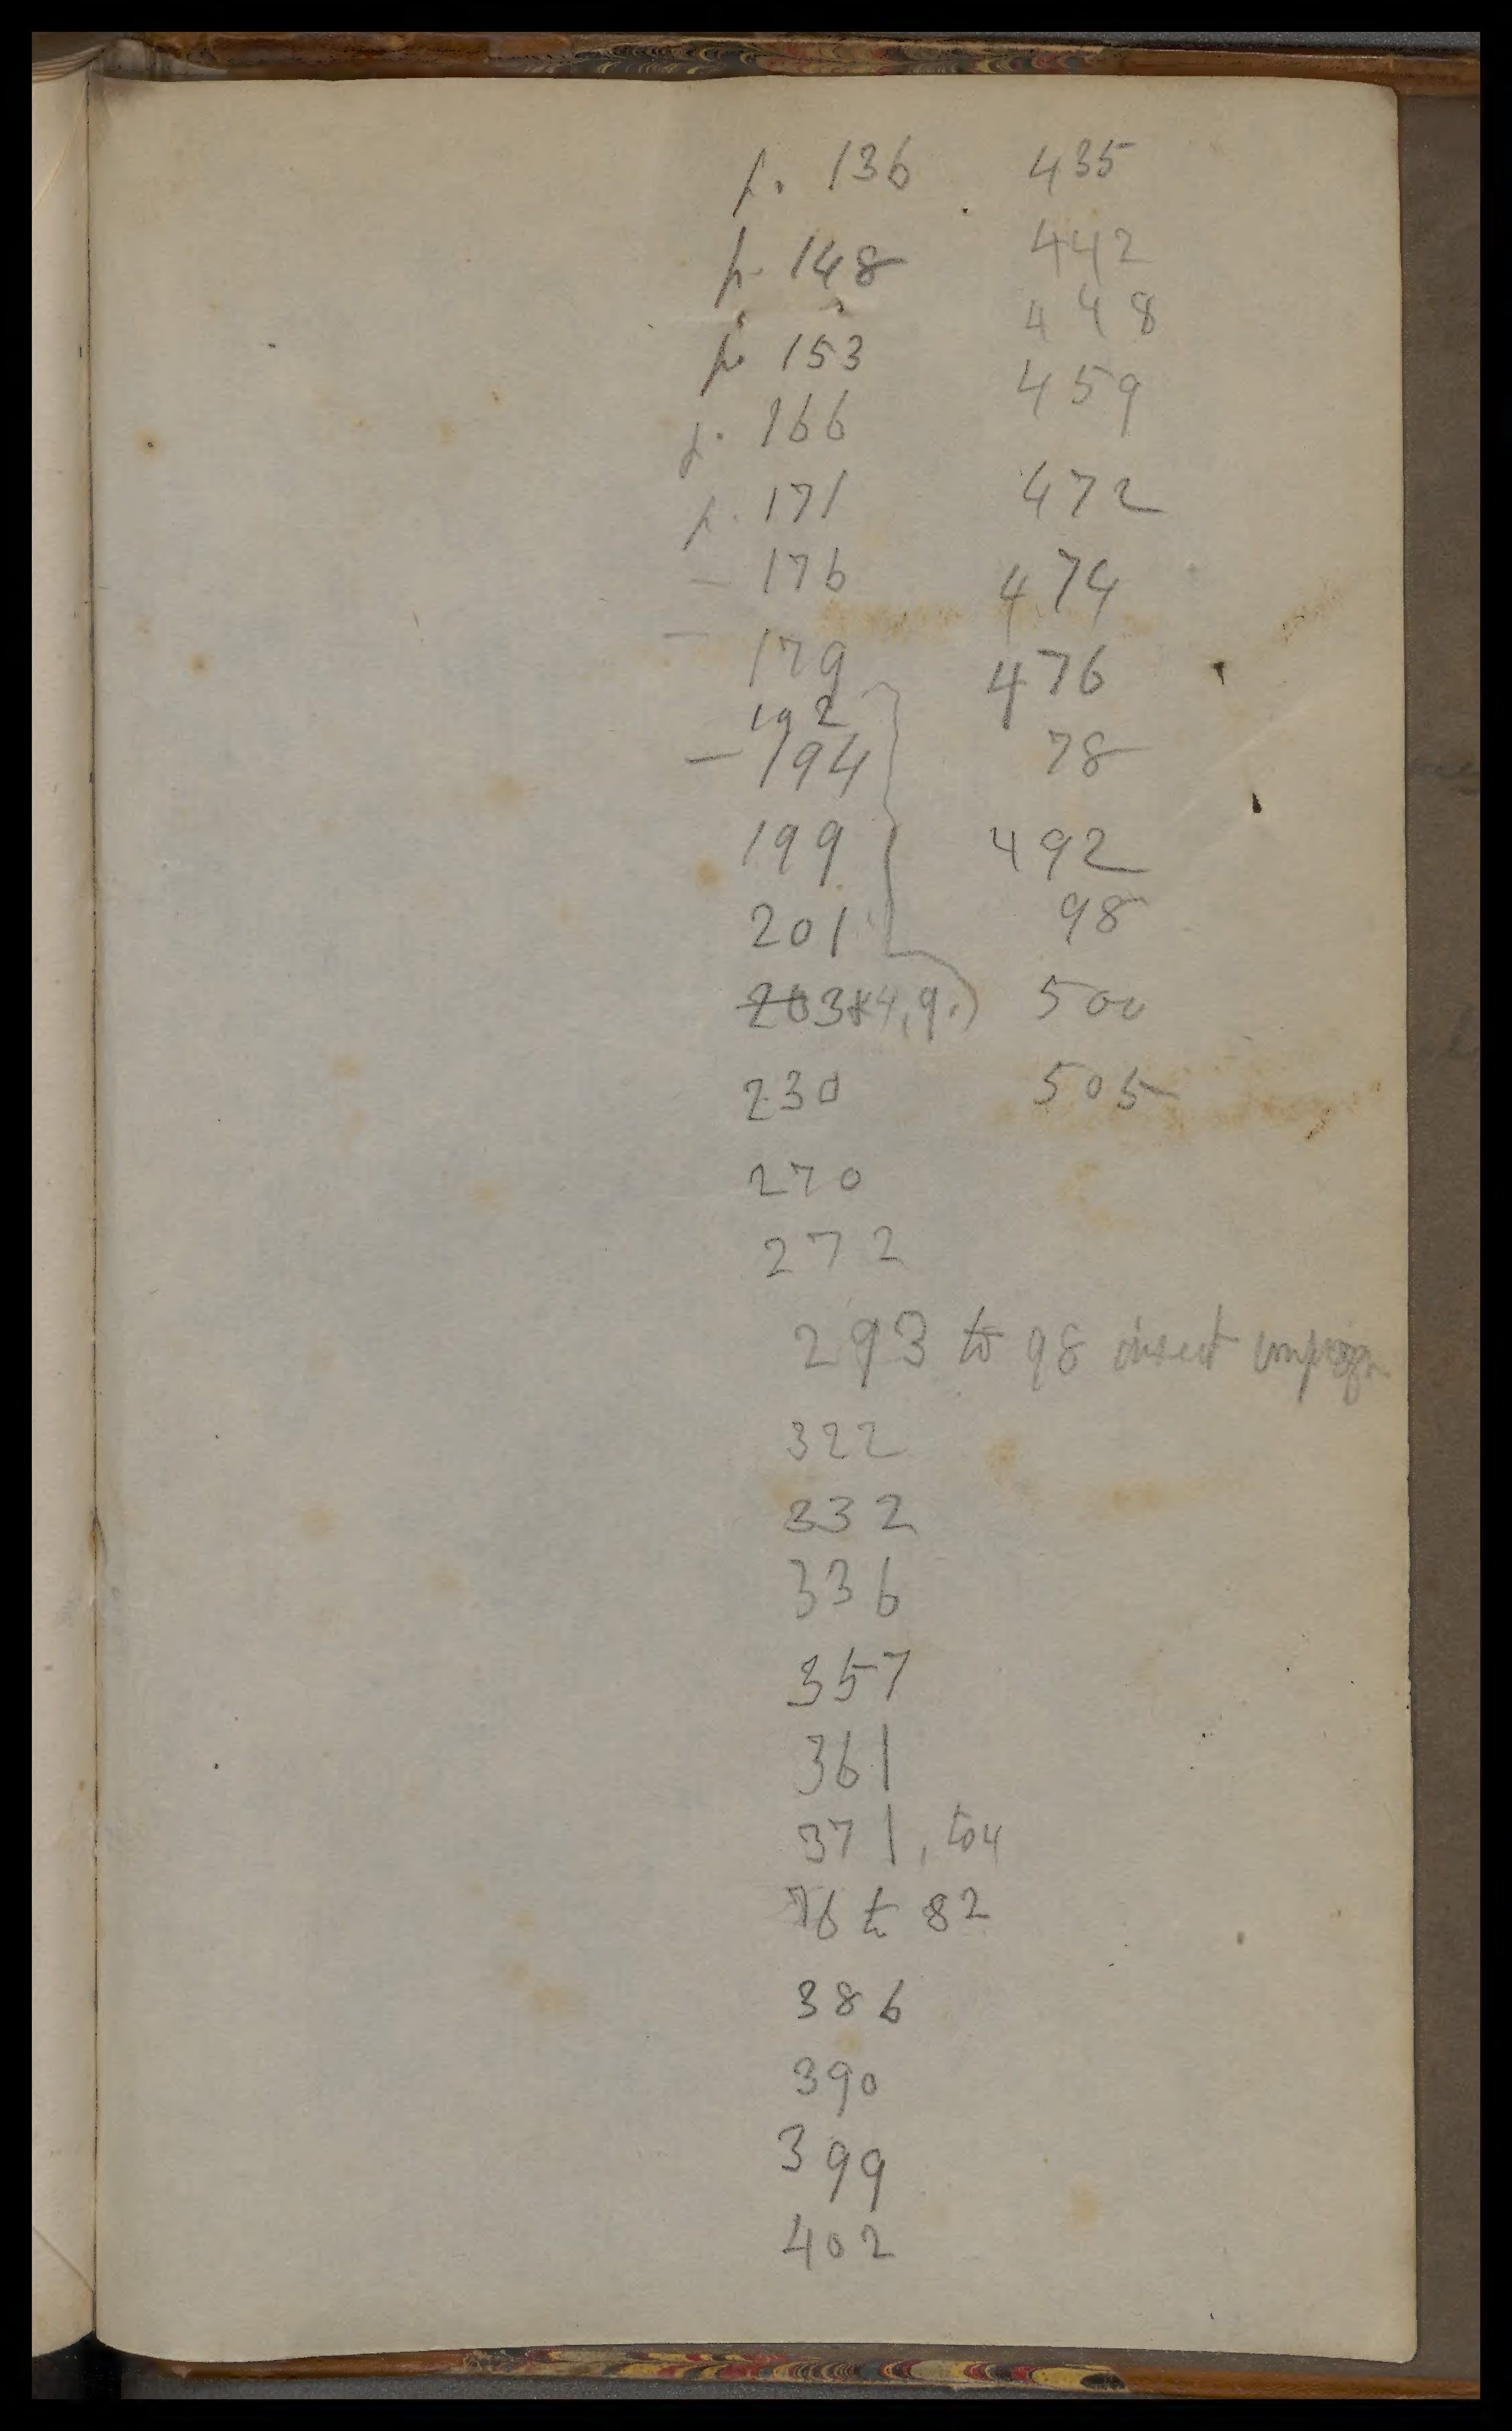 p. 136
p. 148
p. 153
p. 166
p. 171
– 176
– 179
192
– 194
199
201
203 & 4, 9.)
230
270
272
293 to 98 insect
322
332
336
357
361
371, to 4
76 to 82
386
390
399
402
435
442
448
459
472
474
476
78
492
98
500
505